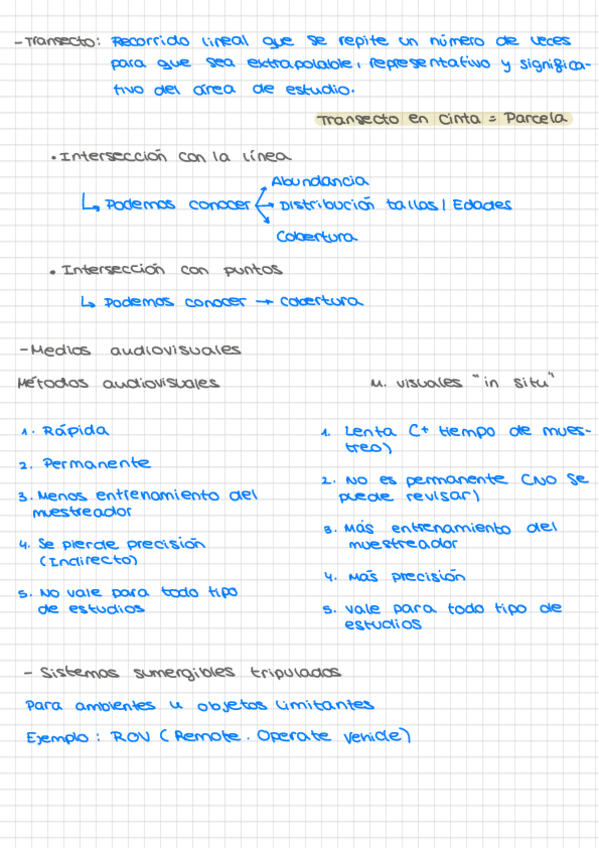 - Transecto: Recorrido lineal que se repite un número de veces
para que sea extrapolable, representativo y significa-
tivo del área de estudio.
Transecto en cinta = Parcela
• Intersección con la línea
Abundancia
↳ Podemos conocer → Distribución tallas / Edades
Cobertura
• Intersección con puntos
↳ Podemos conocer → cobertura
- Medios audiovisuales
Métodos audiovisuales
1. Rápida
2. Permanente
3. Menos entrenamiento del
muestreador
4. Se pierde precisión
(Indirecto)
5. No vale para todo tipo
de estudios
M. visuales "in situ"
1. Lenta (+ tiempo de mues-
treo)
2. No es permanente (No se
puede revisar)
3. Más entrenamiento del
muestreador
4. Más precisión
5. Vale para todo tipo de
estudios
- Sistemas sumergibles tripulados
Para ambientes u objetos limitantes
Ejemplo: ROV (Remote. Operate Vehicle)